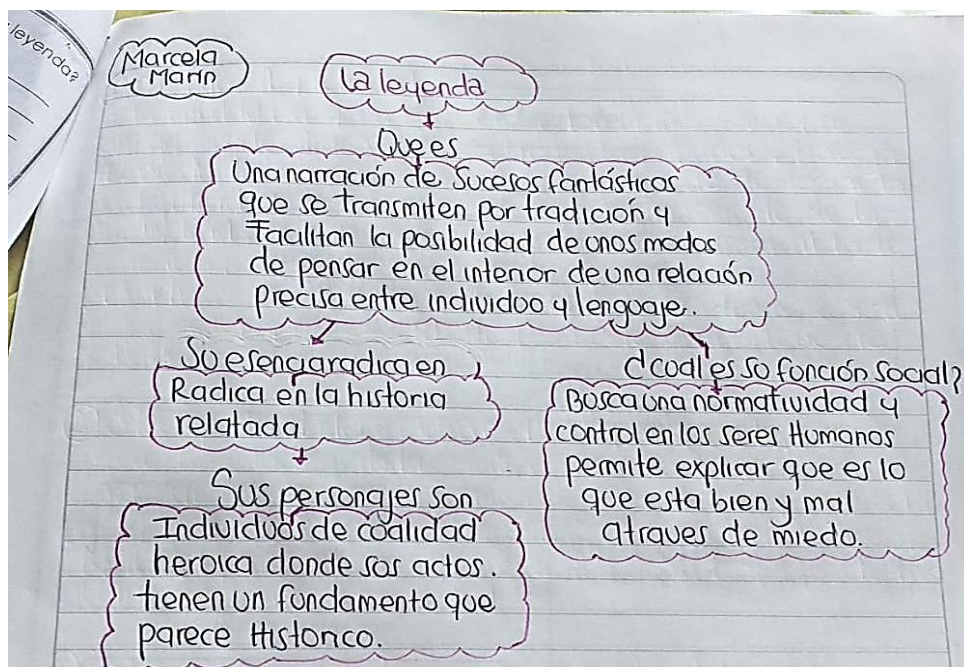 leyenda?
Marcela
Marin
La leyenda
Que es
Una narración de Sucesos fantásticos
que se transmiten por tradición y
Facilitan la posibilidad de unos modos
de pensar en el interior de una relación
Precisa entre individuo y lenguaje.
Su esencia radica en
Radica en la historia
relatada
Sus personajes son
Individuos de cualidad
heroica donde sus actos.
tienen un fundamento que
parece Historico.
¿cual es su función Social?
Busca una normatividad y
control en los seres Humanos
permite explicar que es lo
que esta bien y mal
atraves de miedo.